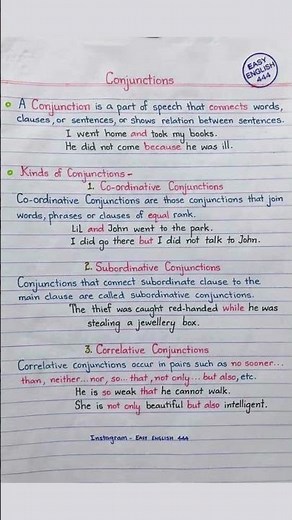 EASY
ENGLISH
444
Conjunctions
A Conjunction is a part of speech that connects words,
clauses, or sentences, or shows relation between sentences.
I went home and took my books.
He did not come because he was ill.
Kinds of Conjunctions -
1. Co-ordinative Conjunctions
Co-ordinative Conjunctions are those conjunctions that join
words, phrases or clauses of equal rank.
LiL and John went to the park.
I did go there but I did not talk to John.
2. Subordinative Conjunctions
Conjunctions that connect subordinate clause to the
main clause are called subordinative conjunctions.
The thief was caught red-handed while he was
stealing a jewellery box.
3. Correlative Conjunctions
Correlative conjunctions occur in pairs such as no sooner...
than, neither...nor, so...that, not only... but also, etc.
He is so weak that he cannot walk.
She is not only beautiful but also intelligent.
Instagram - EASY ENGLISH 444